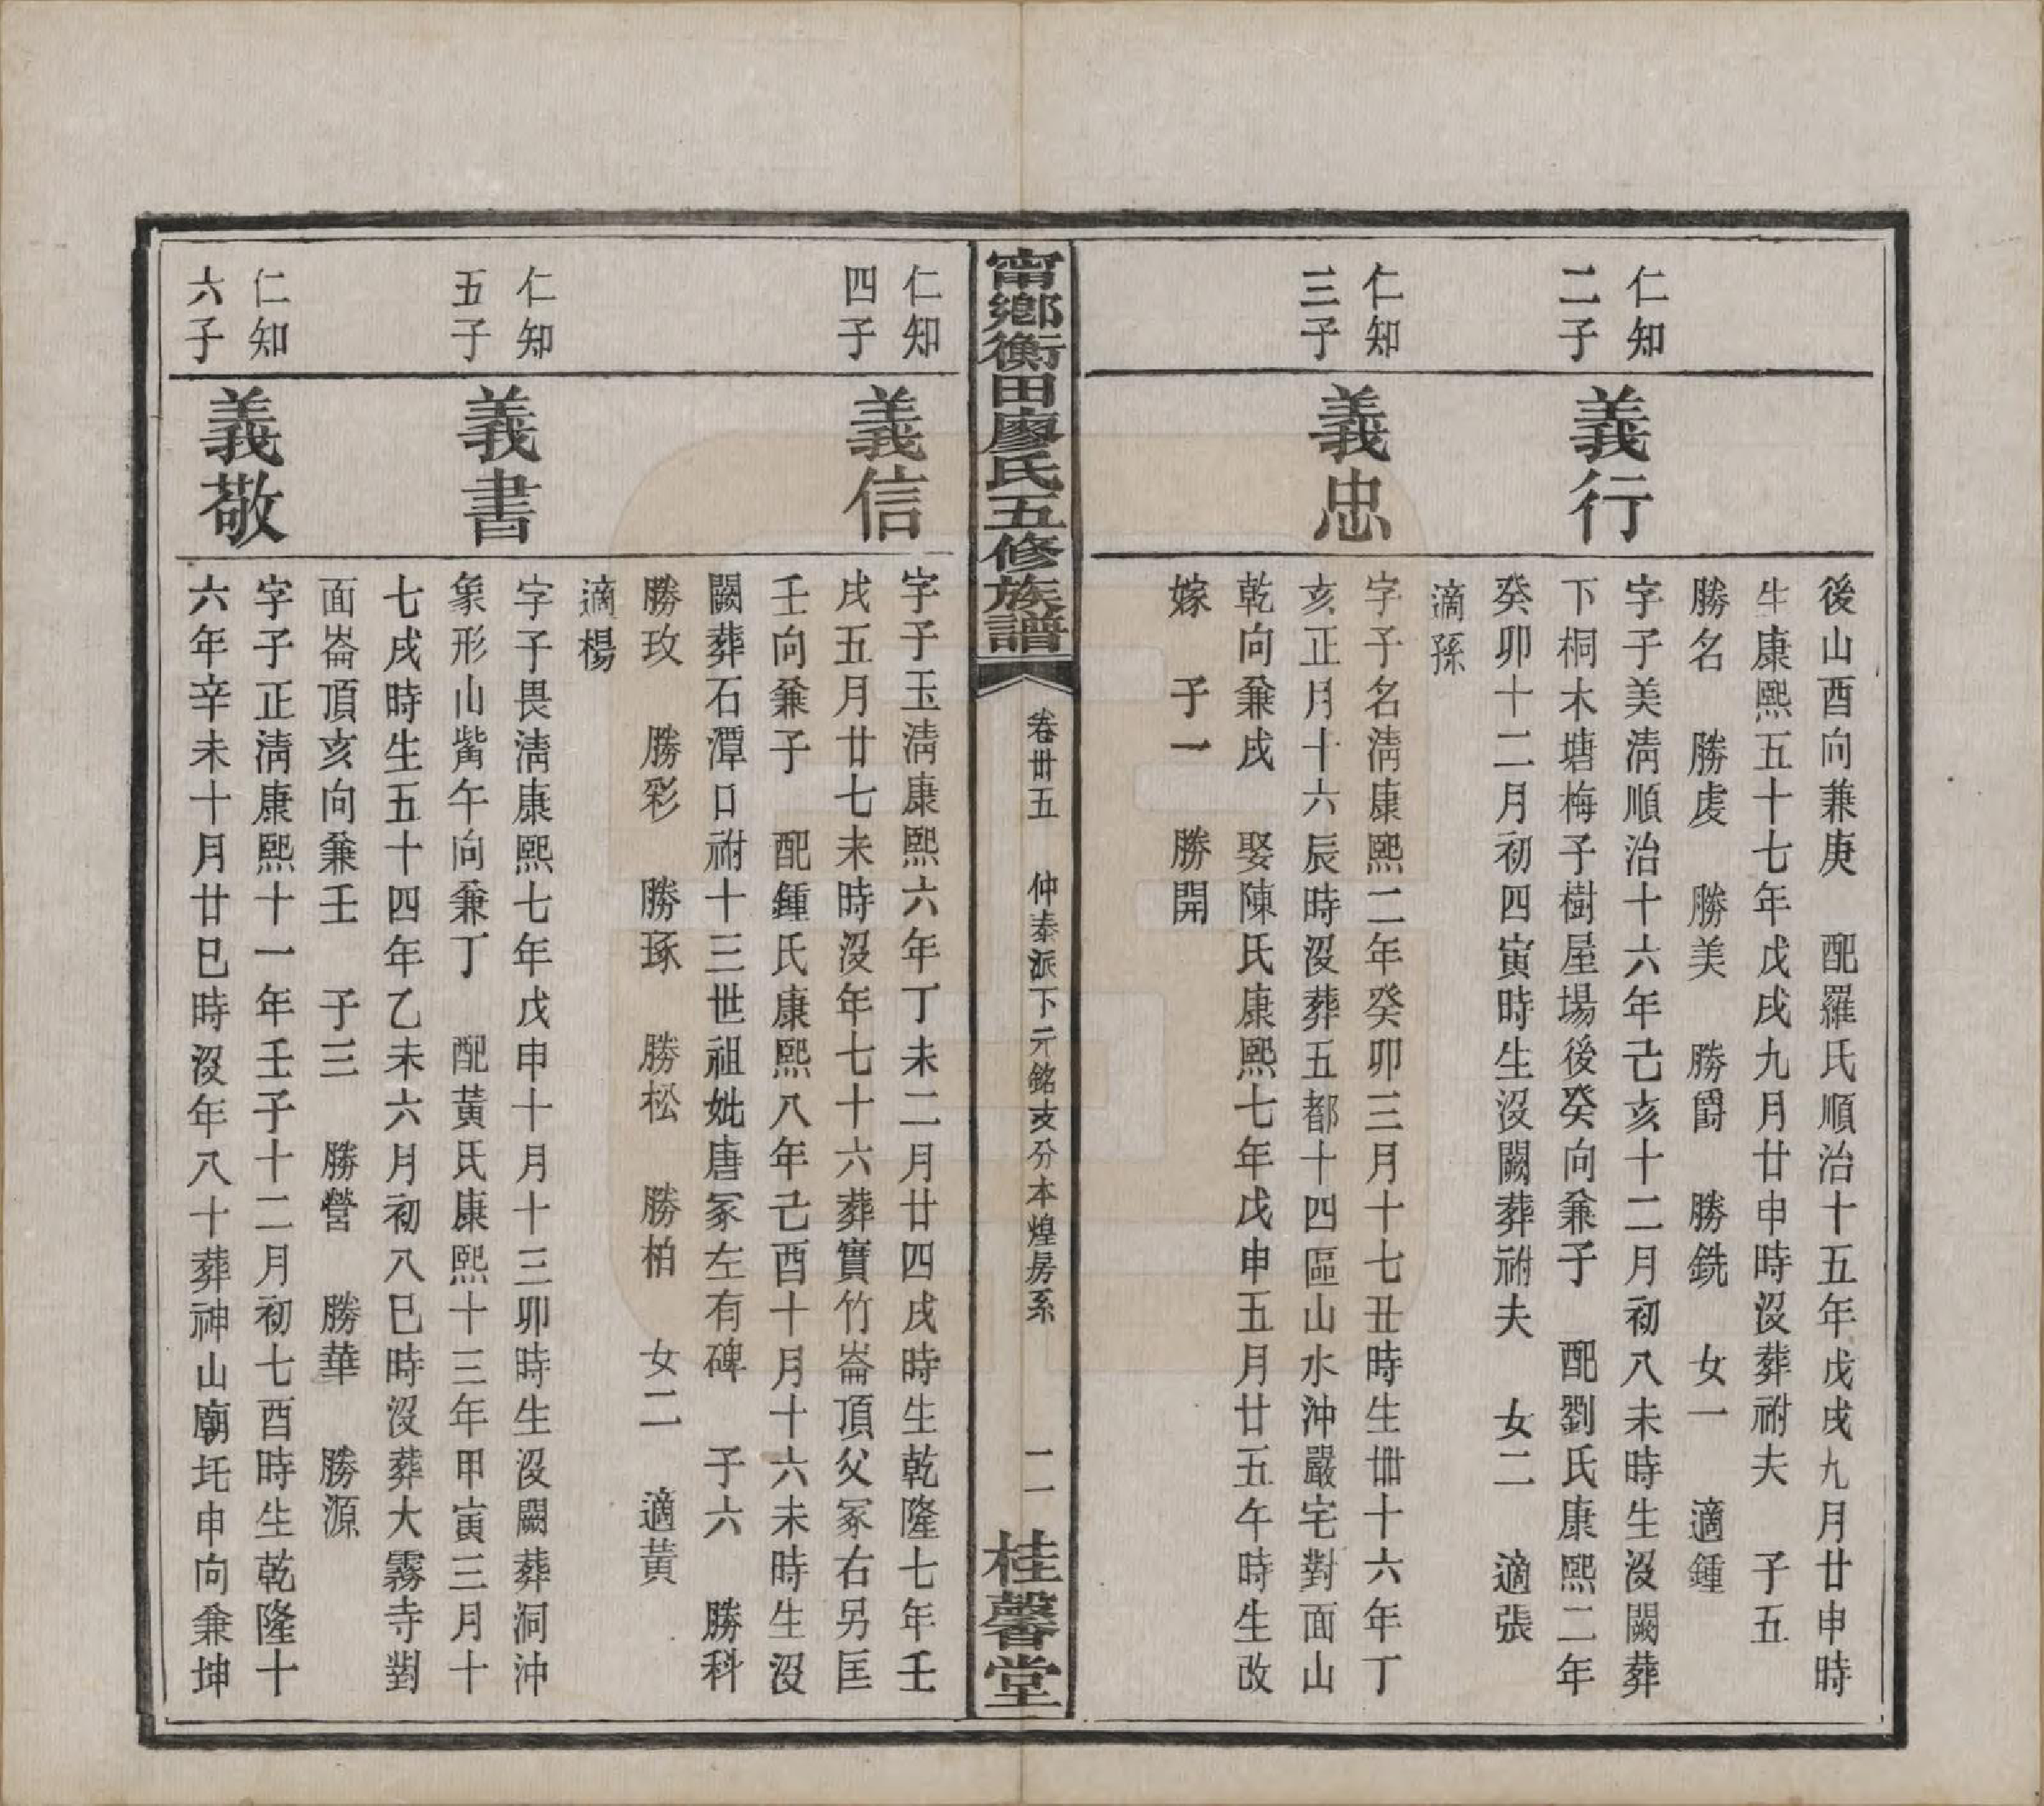 後山酉向兼庚　配羅氏順治十五年戊戌九月廿申時
生康熙五十七年戊戌九月廿申時沒葬祔夫　子五
勝名　勝虔　勝美　勝爵　勝銑　女一　適鍾
仁知
二子
義行
字子美淸順治十六年己亥十二月初八未時生沒闕葬
下桐木塘梅子樹屋場後癸向兼子　配劉氏康熙二年
癸卯十二月初四寅時生沒闕葬祔夫　女二　適張
適孫
仁知
三子
義忠
字子名淸康熙二年癸卯三月十七丑時生卌十六年丁
亥正月十六辰時沒葬五都十四區山水沖嚴宅對面山
乾向兼戌　娶陳氏康熙七年戊申五月廿五午時生改
嫁　子一　勝開
甯鄉衡田廖氏五修族譜
卷卅五　仲泰派下元銘支分本煌房系　二一
桂馨堂
仁知
四子
義信
字子玉淸康熙六年丁未二月廿四戌時生乾隆七年壬
戌五月廿七未時沒年七十六葬實竹崙頂父冢右另匡
壬向兼子　配鍾氏康熙八年己酉十月十六未時生沒
闕葬石潭口祔十三世祖妣唐冢左有碑　子六　勝科
勝玫　勝彩　勝琢　勝松　勝柏　女二　適黃
適楊
仁知
五子
義書
字子畏淸康熙七年戊申十月十三卯時生沒闕葬洞沖
象形山觜午向兼丁　配黃氏康熙十三年甲寅三月十
七戌時生五十四年乙未六月初八巳時沒葬大霧寺對
面崙頂亥向兼壬　子三　勝營　勝華　勝源
仁知
六子
義敬
字子正淸康熙十一年壬子十二月初七酉時生乾隆十
六年辛未十月廿巳時沒年八十葬神山廟圫申向兼坤